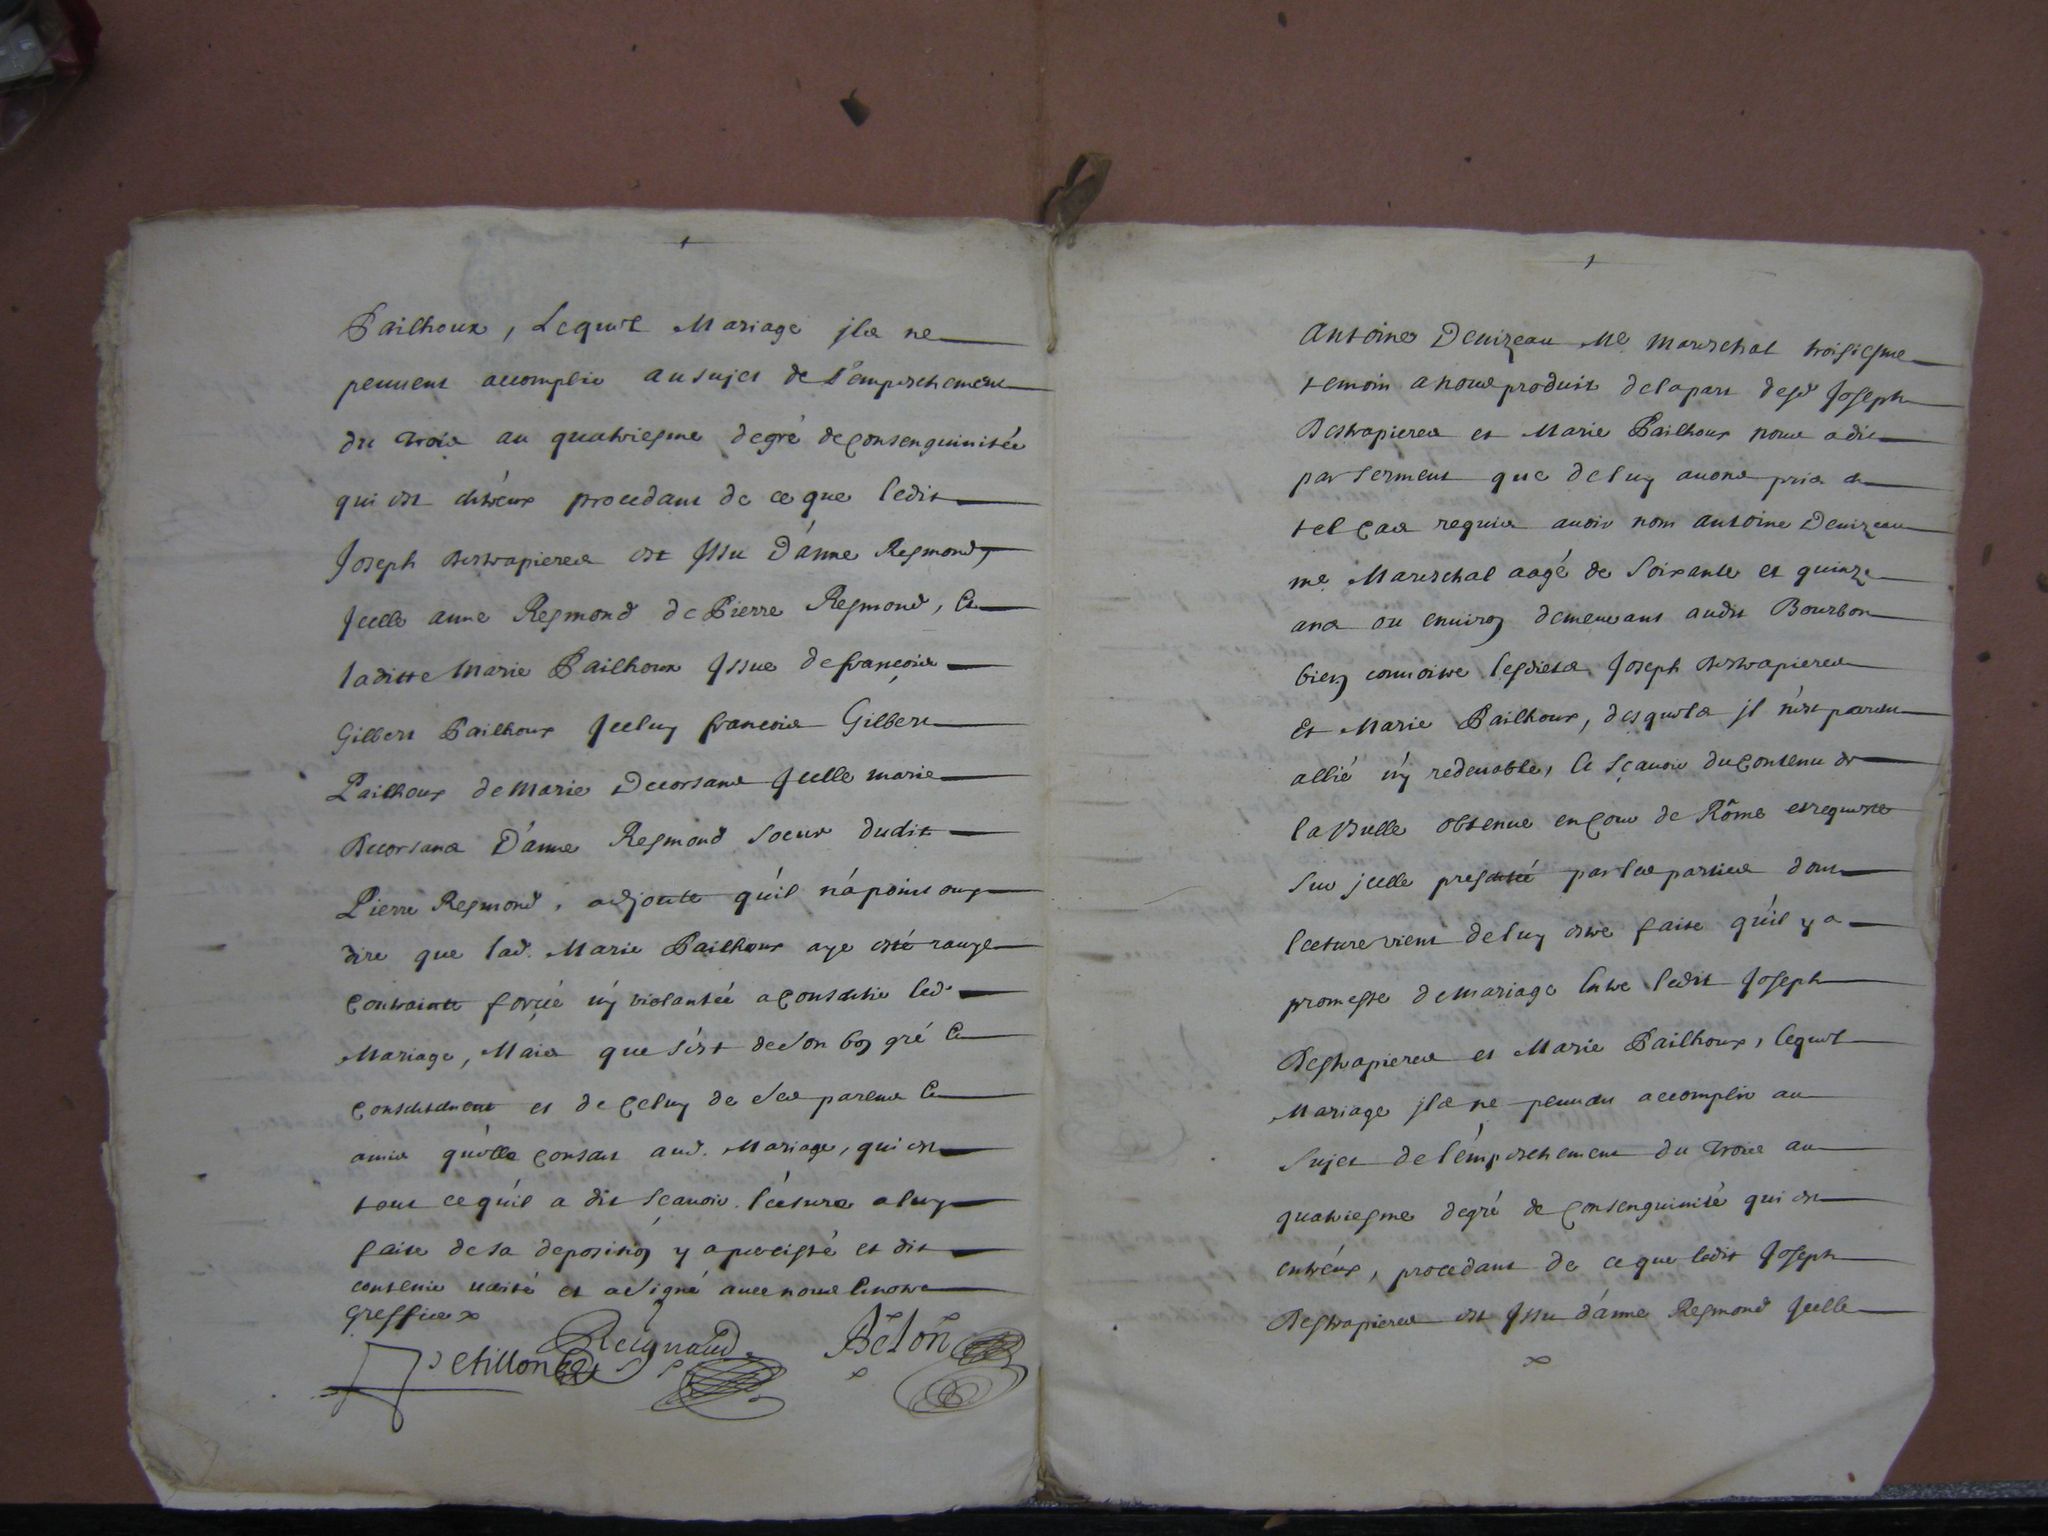 Pailhoux, Lequel Mariage jls ne
peuuent accomplir au sujet de l'empeschement
du trois au quatriesme degré de Consenguinitée
qui est entr'eux procedant de ce que ledit
Joseph Destrapieres est Issu D'anne Regmond,
Jcelle anne Regmond de Pierre Regmond, Et
laditte Marie Pailhoux Issue de françois
Gilbert Pailhoux Jceluy françois Gilbert
Pailhoux de Marie Decorsans Jcelle marie
Decorsans D'anne Regmond soeur dudit
Pierre Regmond, adjoute qu'il n'a point ouy
dire que lad. Marie Pailhoux aye esté rauye
Contrainte forcée n'y violantée a Consentir led.
Mariage, Mais que s'est de son bon gré Et
Consentement et de Celuy de ses parens Et
amis qu'elle Consent aud. Mariage, qui est
tout ce qu'il a dit scauoir. lecture a luy
faite de sa deposition y a percisté et dit
contenir verité et a signé auec nous Et notre
Greffier
Petillon Reignaud Belon
Antoine Denizeau Me Mareschal troisiesme
temoin a nous produit de la part desd Joseph
Destrapieres et Marie Pailhoux nous a dit
par serment que de luy auons pris en
tel Cas requis auoir nom antoine Denizeau
me Mareschal aagé de Soixante et quinze
ans ou enuiron demeurant audit Bourbon
bien connoitre lesdiets Joseph Destrapieres
Et Marie Pailhoux, desquels jl n'est parent
allié n'y redeuable, Et sçauoir du Contenu de
la Bulle obtenue en Cour de Rôme et requeste
sur jcelle presentée par les parties dont
lecture vient de luy estre faite qu'il y a
promesse de mariage Entre ledit Joseph
Destrapieres et Marie Pailhoux, lequel
Mariage jls ne peuuent accomplir au
Sujet de l'empeschement du trois au
quatriesme degré de Consenguinité qui est
entr'eux, procedant de ce que ledit Joseph
Destrapieres est Issu d'anne Regmond Jcelle